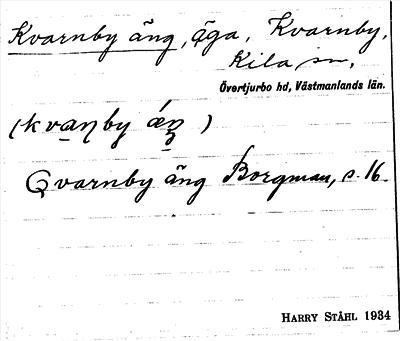 Kvarnby äng, äga, Kvarnby,
Kila sn,
Övertjurbo hd, Västmanlands län.
(kvaɳby äŋ)
Qvarnby äng Borgman, s. 16.
HARRY STÅHL 1934